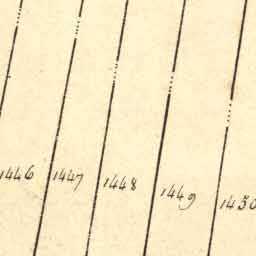 1446 1447 1448 1449 1450